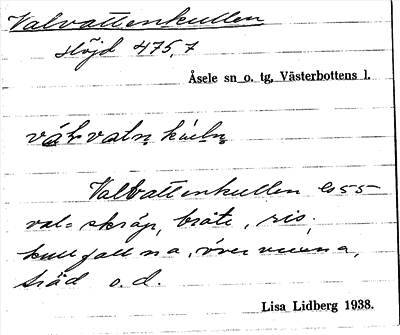 Valvattenkullen
Höjd 475,7
Åsele sn o. tg, Västerbottens l.
Valvattenkullen
val = skräp, bråte, ris,
kullfallna, övervuxna,
träd o.d.
Lisa Lidberg 1938.